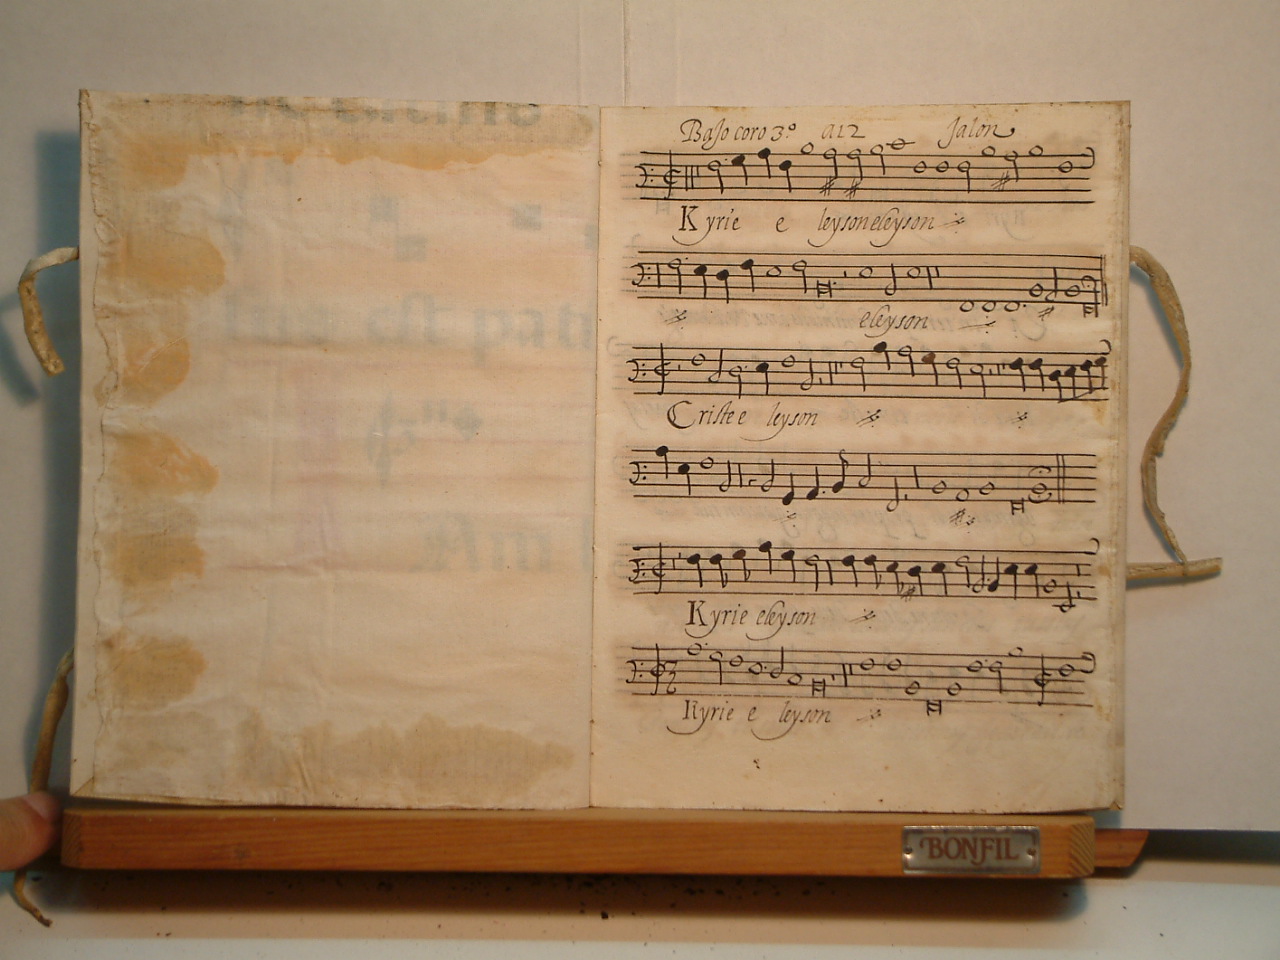 Baſo coro 3º a12 Jalon
Kyrie e leyson eleyson
eleyson
Criste e leyson
Kyrie eleyson
Kyrie e leyson
BONFIL